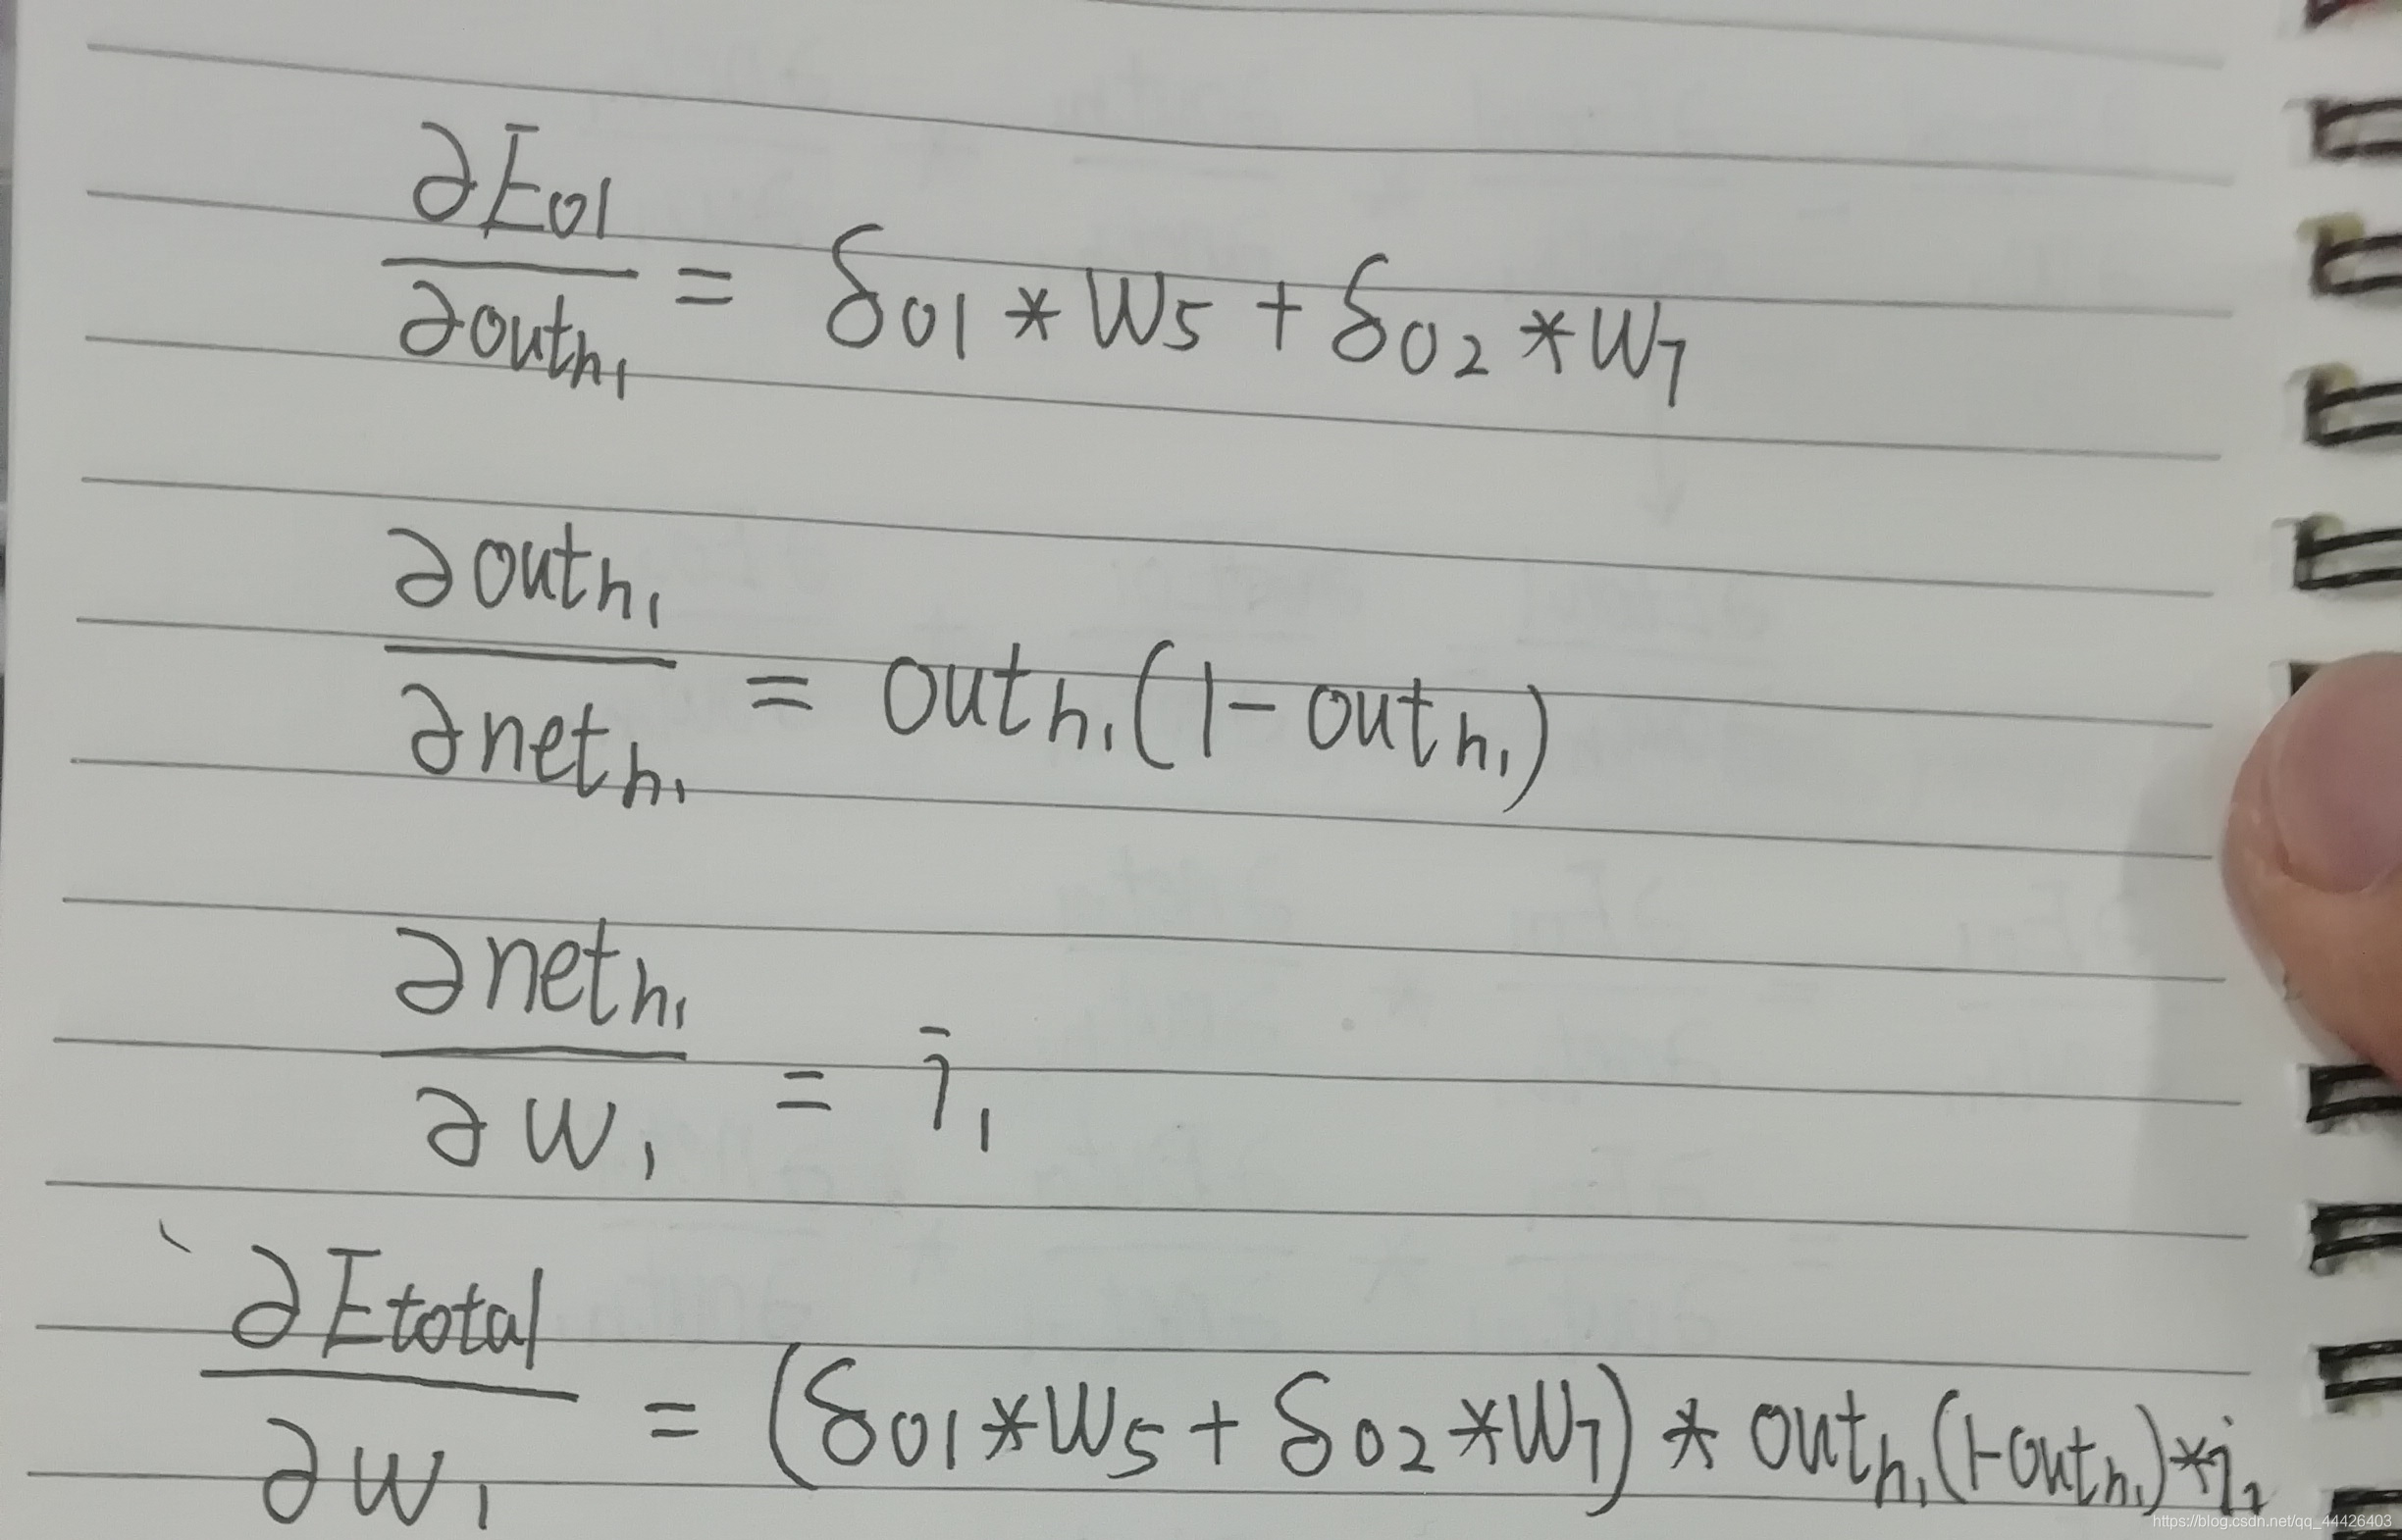 ∂E₀₁/∂outₕ₁ = δ₀₁ * W₅ + δ₀₂ * W₇
∂outₕ₁/∂netₕ₁ = outₕ₁(1 - outₕ₁)
∂netₕ₁/∂w₁ = i₁
∂Etotal/∂w₁ = (δ₀₁ * W₅ + δ₀₂ * W₇) * outₕ₁(1-outₕ₁) * i
https://blog.csdn.net/qq_44426403